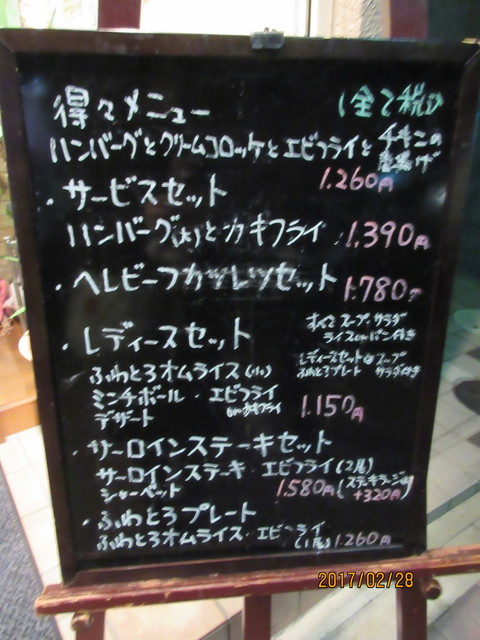 得々メニュー (全て税込
ハンバーグとクリームコロッケとエビフライとチキンの唐揚げ
1.260円
・サービスセット
ハンバーグ(大)とカキフライ 1.390円
・ヘレビーフカツレツセット 1.780
すべてスープ.サラダ
ライスorパン付き
・レディースセット
レディースセットはスープ
ふわとろプレート サラダ付き
ふわとろオムライス(小)
ミンチボール・エビフライ
orカキフライ
デザート 1.150円
・サーロインステーキセット
サーロインステーキ・エビフライ(2尾)
シャーベット 1.580円(ステーキラージは
+320円)
・ふわとろプレート
ふわとろオムライス・エビフライ
(1尾) 1.260円
2017/02/28